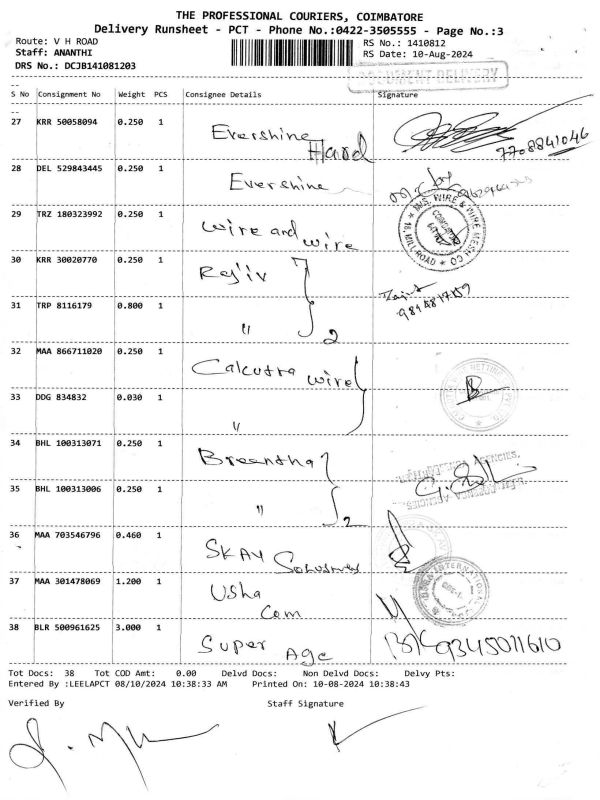 THE PROFESSIONAL COURIERS, COIMBATORE
Delivery Runsheet - PCT - Phone No.:0422-3505555 - Page No.:3
Route: V H ROAD RS No.: 1410812
Staff: ANANTHI RS Date: 10-Aug-2024
DRS No.: DCJB141081203
DOCUMENT DELIVERY
S No Consignment No Weight PCS Consignee Details Signature
27 KRR 50058094 0.250 1 Evershine Hard 7708841046
28 DEL 529843445 0.250 1 Evershine
29 TRZ 180323992 0.250 1 Wire and wire M/S. WIRE & WIRE MESH CO
30 KRR 30020770 0.250 1 Rajiv
31 TRP 8116179 0.800 1 " 2
32 MAA 866711020 0.250 1 Calcutta wire
33 DDG 834832 0.030 1 "
34 BHL 100313071 0.250 1 AGENCIES,
35 BHL 100313006 0.250 1 " 2
36 MAA 703546796 0.460 1 SKAY
37 MAA 301478069 1.200 1 Usha Com INTERNATIONAL
38 BLR 500961625 3.000 1 Super Age 9345011610
Tot Docs: 38 Tot COD Amt: 0.00 Delvd Docs: Non Delvd Docs: Delvy Pts:
Entered By :LEELAPCT 08/10/2024 10:38:33 AM Printed On: 10-08-2024 10:38:43
Verified By Staff Signature